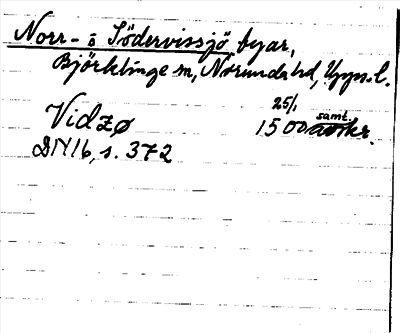 Norr- o Södervissjö byar,
Björklinge sn, Norunda hd, Upps. l.
25/1
Vidzø 1500 samt. kr.
DN 16, s. 372